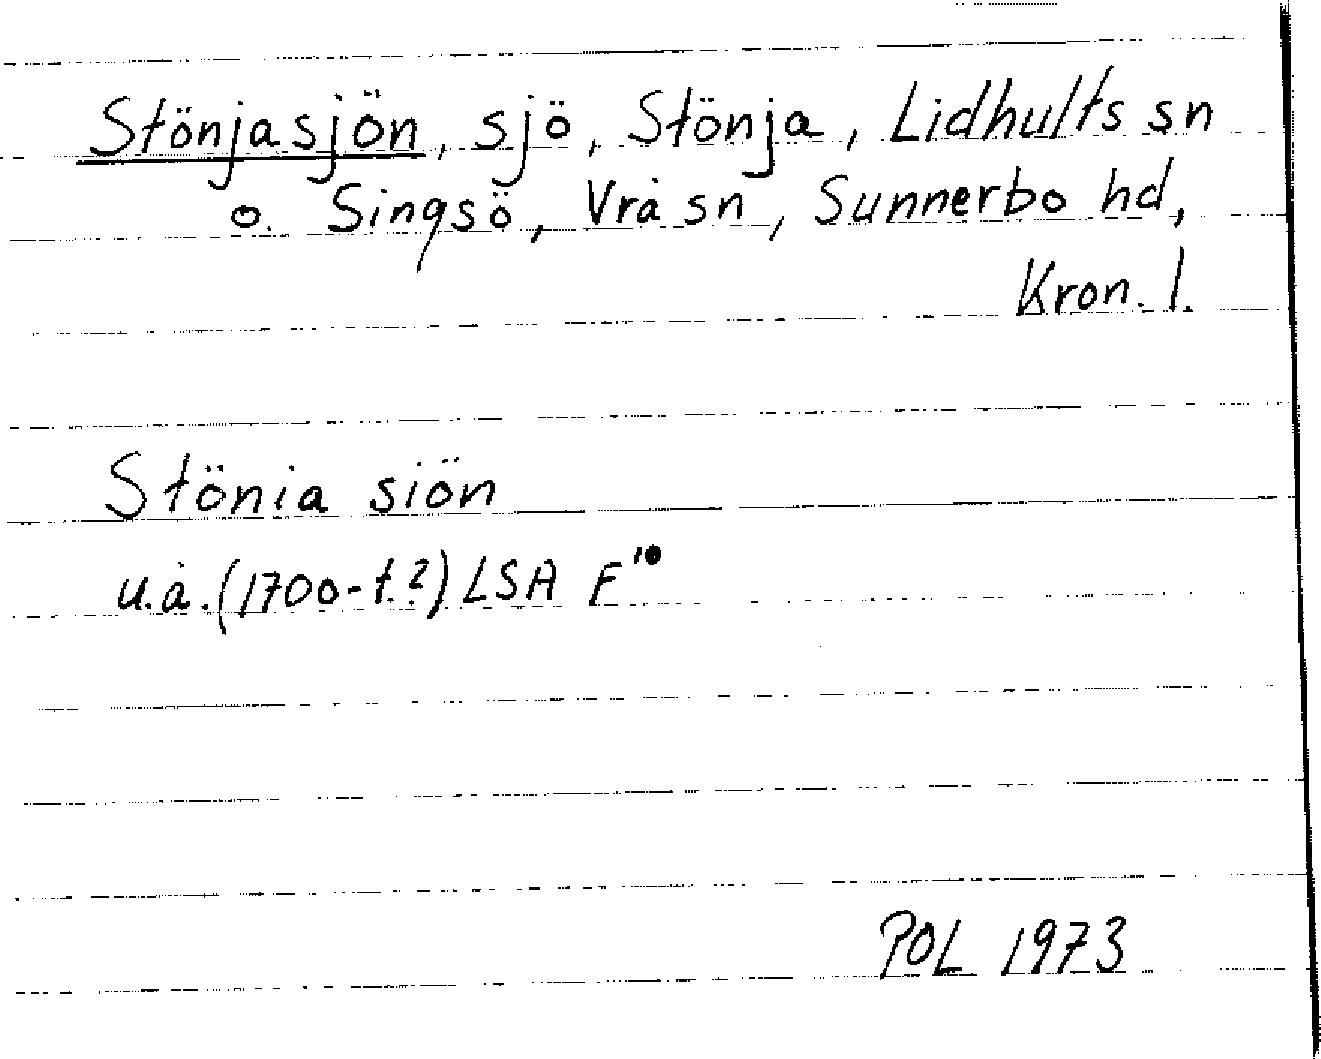 Stönjasjön, sjö, Stönja, Lidhults sn
o. Singsö, Vrå sn, Sunnerbo hd,
Kron. l.
Stönia siön
u.å. (1700-t.?) LSA F¹⁰
POL 1973